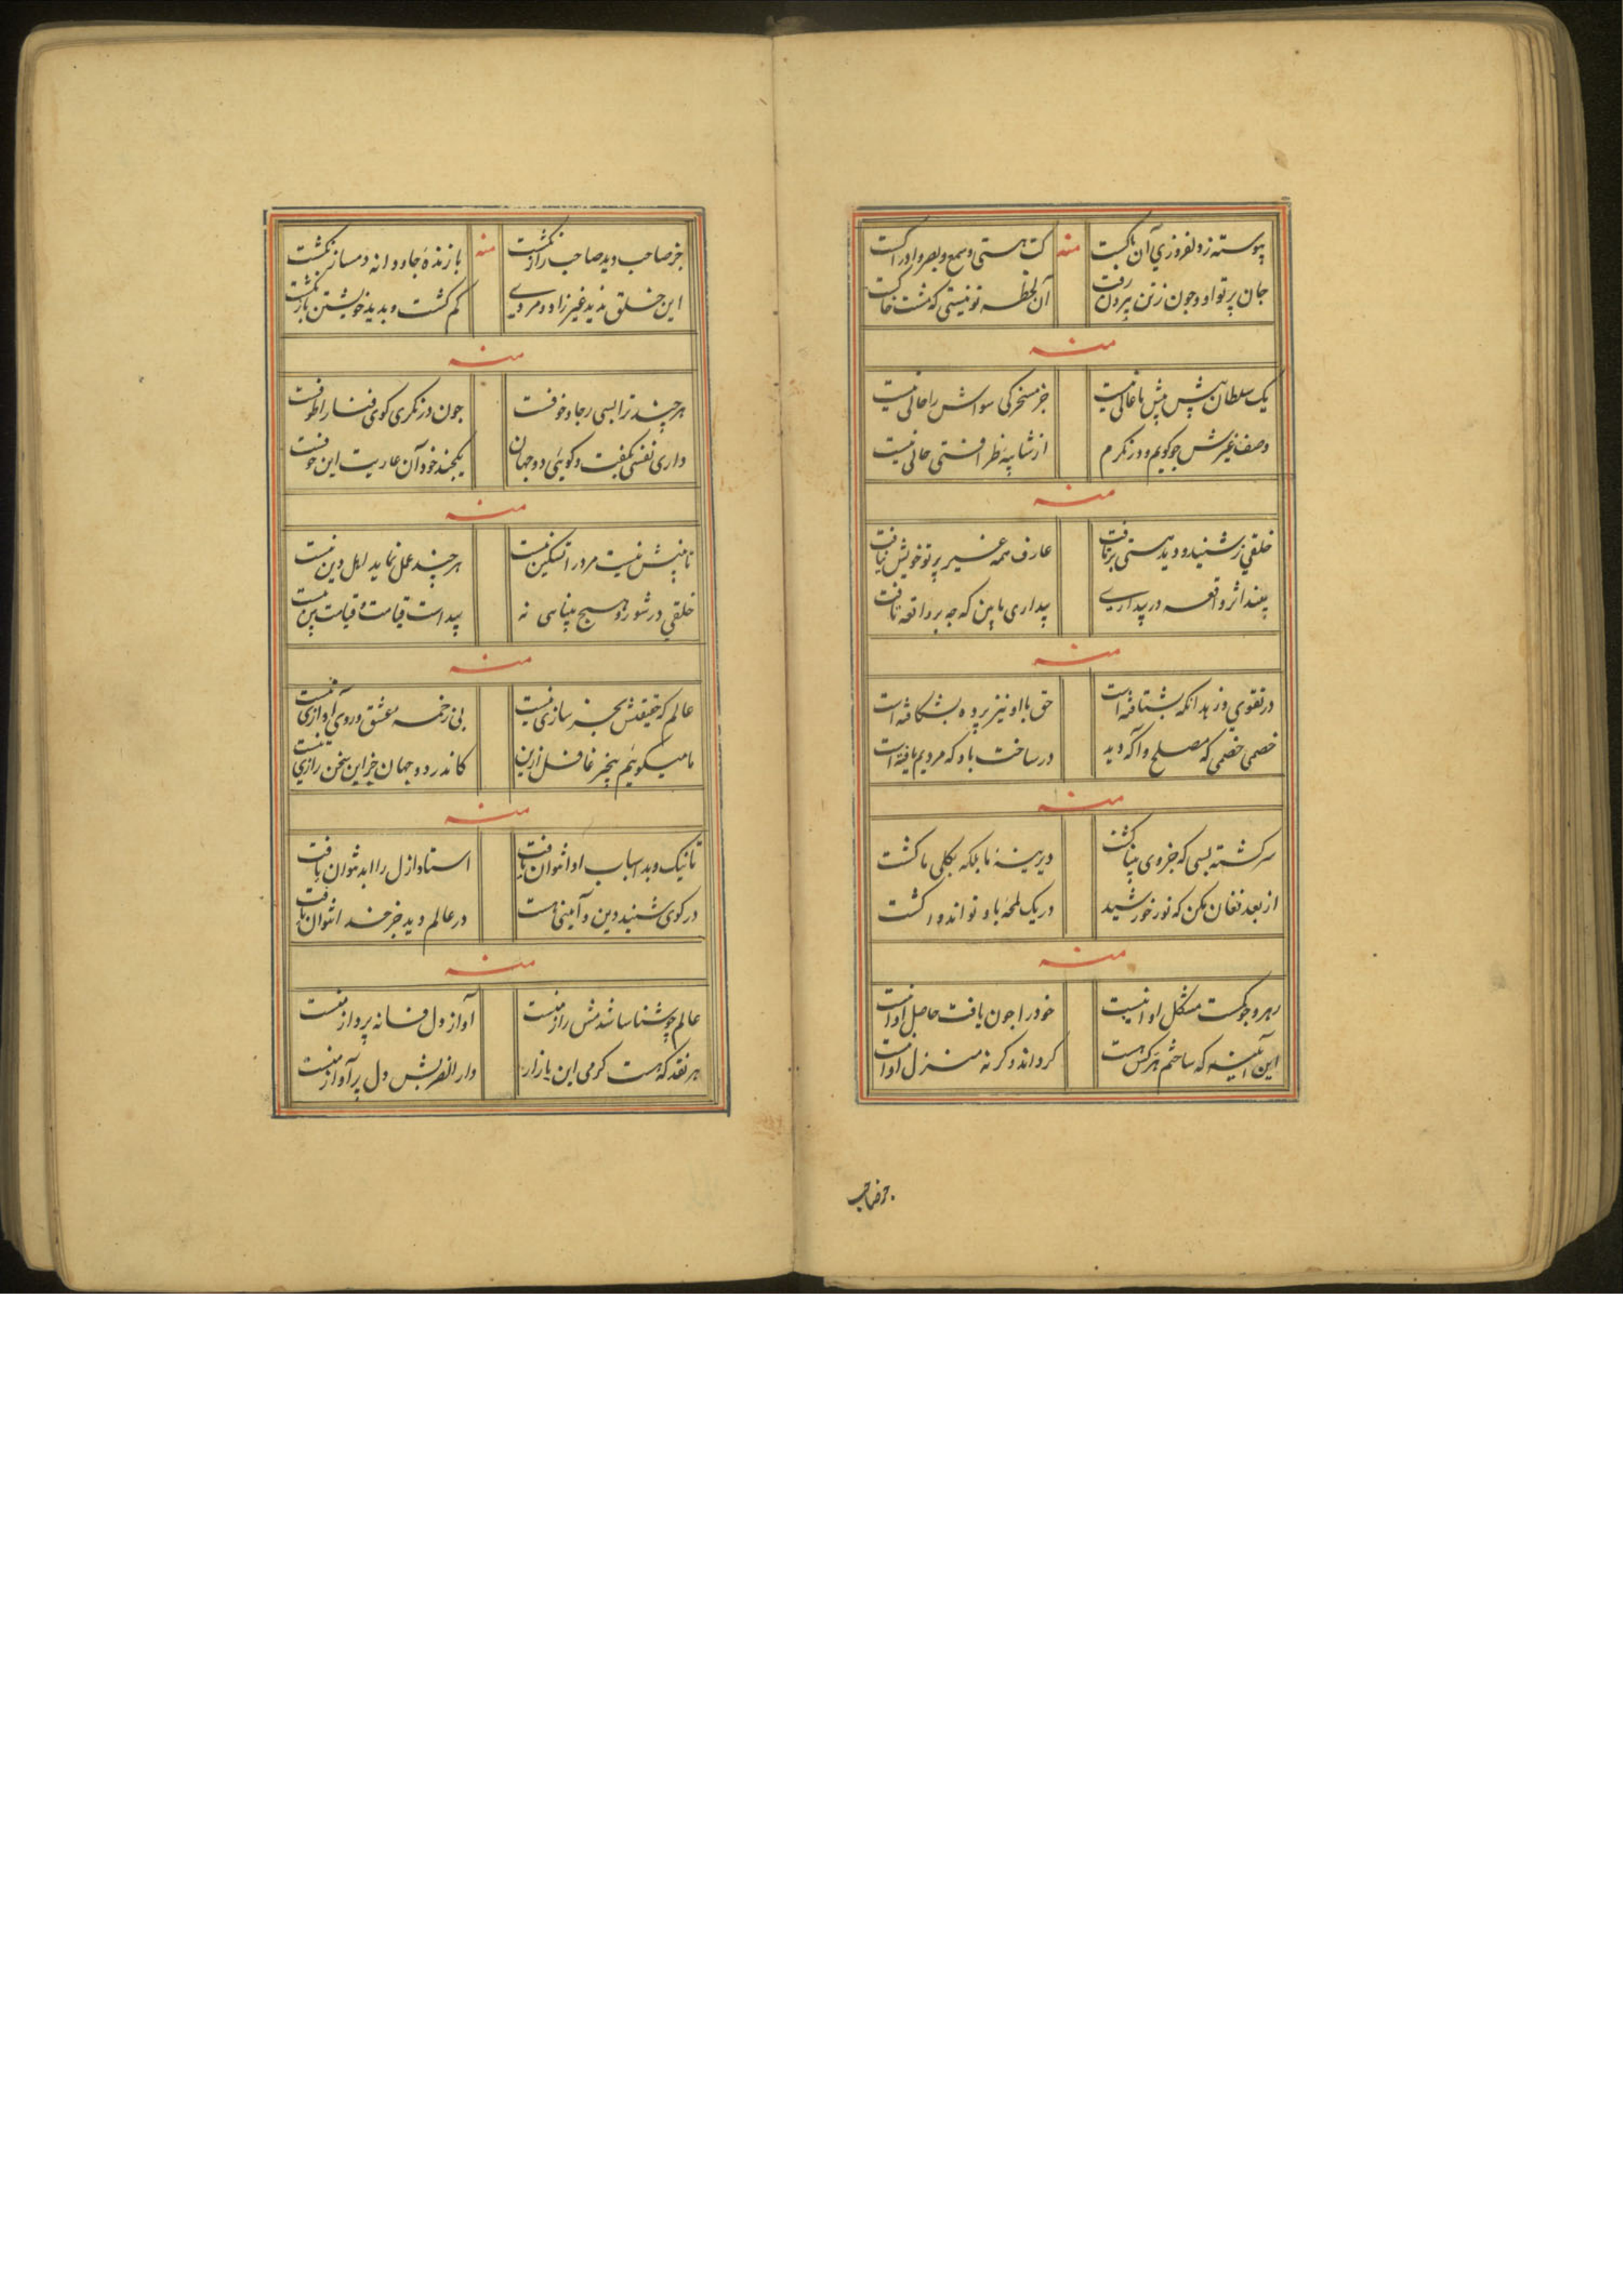 پیوسته ز دلفروزی آن پاکست منه کت هستی و سمع و بصر و ادراکست
جان پرتو او و چون ز تن بیرون رفت آن لحظه تو نیستی که مشت خاکست
منه
یک سلطان بیش پیش ما غالی نیست جز مسخرکی سواش را حالی نیست
وصف غیرش چو کویم و در نکرم از شایبه نظر فتی خالی نیست
منه
خلقی ز شنید و دید هستی بر یافت عارف همه غیر پرتو خویش نیافت
بیند اثر واقعه در بیداری بیداری ما بین که چه بر واقعه تافت
منه
در تقوی و زهد انکه بشتافته است حق با او نیز پرده بشکافته است
خصمی خصمی که مصلح واکه دید در ساخت باو که مردیم یافته است
منه
سرکشته بسی که جزوی بینا کشت دیرینهٔ ما بلکه بکلی ما کشت
از بعد فغان مکن که نور خورشید در یک لمحه باو تواند وا کشت
منه
رهرو جو کمست مشکل او انیست خود را جون یافت حاصل او انیست
این آینه که ساختم هر کس هست کرداند و کر نه منزل او انیست
جز صاحب
جز صاحب دید صاحب راز نکشت منه با زندهٔ جاودانه دمساز نکشت
این خلق ندید غیر زاد و مردی کم کشت و بدید خویشتن باز نکشت
منه
هر چند ترا بسی رجا و خوفست جون در نکری کوی فنا را طوفست
داری نفسی بکفت و کوئی دو جهان یکجند خود آن عاریت این خوفست
منه
تا بینش نیست مرد را تسکین نیست هر چند عمل نماید اهل دین نیست
خلقی در شور و هیچ بینایی نه پیداست قیامت و قیامت بین نیست
منه
عالم که حقیقتش بجز سازی نیست بی زخمه عشق در وی آوازی نیست
ما میکوئیم بیخبر غافل ازین کاندر دو جهان جز این سخن رازی نیست
منه
تا نیک و بد اسباب او نتوان یافت استاد ازل را ابد نتوان یافت
در کوی شنید دین و آیینی هست در عالم دید جز خدا نتوان یافت
منه
عالم چو شناسا شدمش راز منست آواز دل فسانه پرداز منست
هر نقد که هست کرمی این بازار دار الضربش دل پر آواز منست